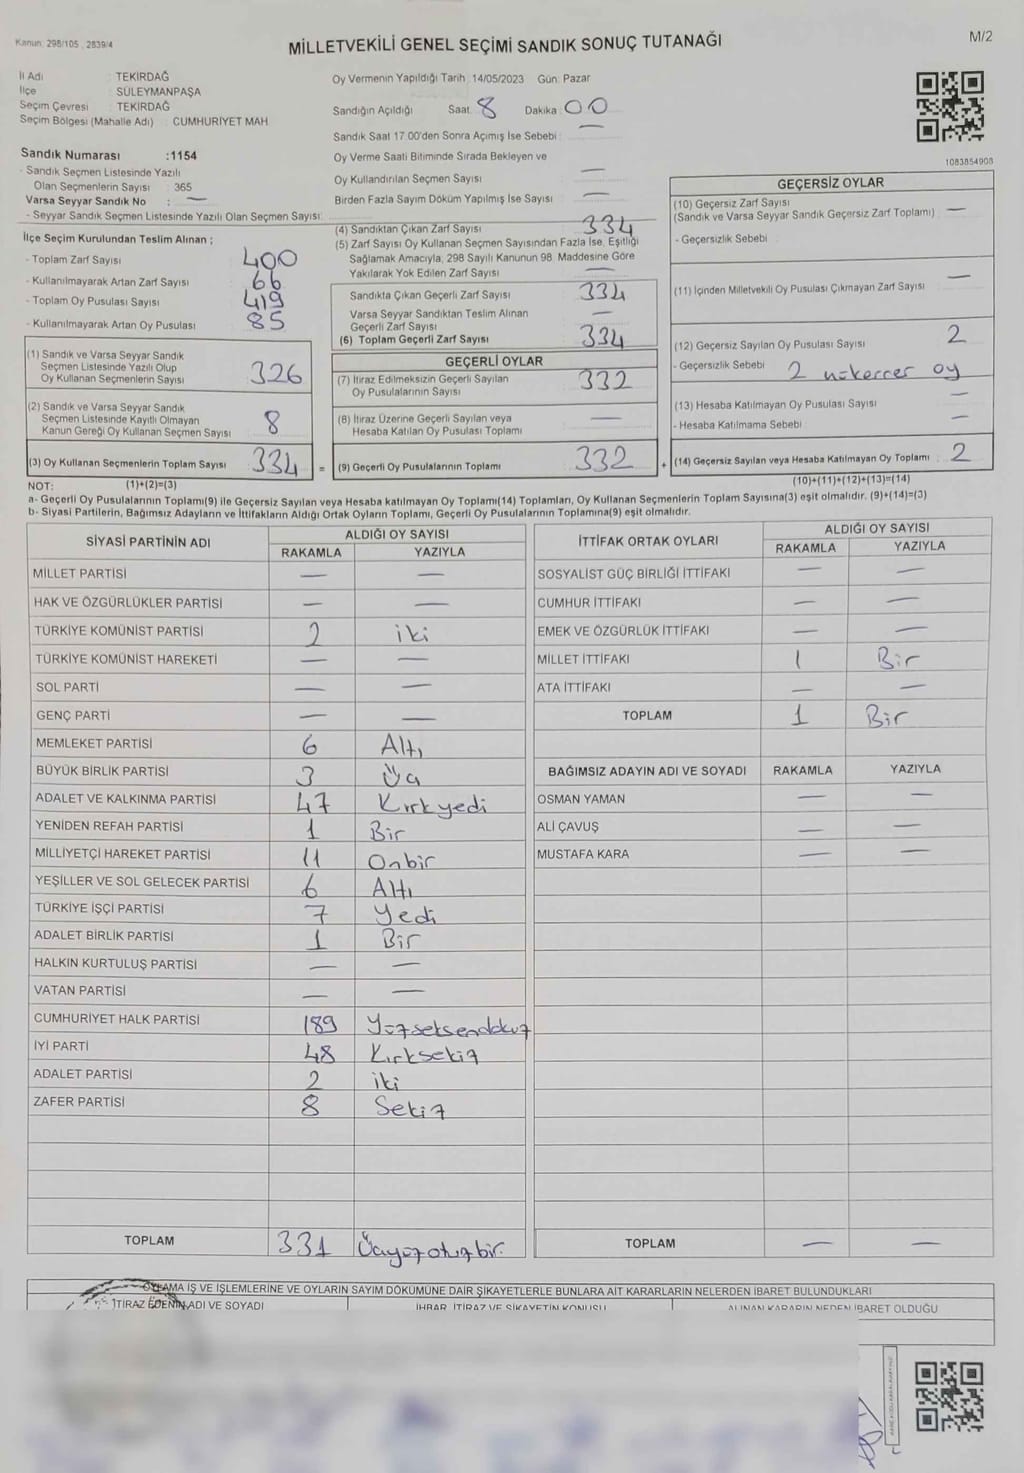 Kanun: 298/105 , 2839/4
MİLLETVEKİLİ GENEL SEÇİMİ SANDIK SONUÇ TUTANAĞI
M/2
İl Adı : TEKİRDAĞ
İlçe : SÜLEYMANPAŞA
Seçim Çevresi : TEKİRDAĞ
Seçim Bölgesi (Mahalle Adı) : CUMHURİYET MAH
Sandık Numarası :1154
- Sandık Seçmen Listesinde Yazılı
Olan Seçmenlerin Sayısı : 365
Varsa Seyyar Sandık No : —
- Seyyar Sandık Seçmen Listesinde Yazılı Olan Seçmen Sayısı:
Oy Vermenin Yapıldığı Tarih :14/05/2023 Gün: Pazar
Sandığın Açıldığı Saat: 8 Dakika: 00
Sandık Saat 17:00'den Sonra Açımış İse Sebebi : —
Oy Verme Saati Bitiminde Sırada Bekleyen ve
Oy Kullandırılan Seçmen Sayısı —
Birden Fazla Sayım Döküm Yapılmış İse Sayısı —
1083854908
İlçe Seçim Kurulundan Teslim Alınan ;
- Toplam Zarf Sayısı : 400
- Kullanılmayarak Artan Zarf Sayısı : 66
- Toplam Oy Pusulası Sayısı : 419
- Kullanılmayarak Artan Oy Pusulası : 85
(1) Sandık ve Varsa Seyyar Sandık
Seçmen Listesinde Yazılı Olup
Oy Kullanan Seçmenlerin Sayısı : 326
(2) Sandık ve Varsa Seyyar Sandık
Seçmen Listesinde Kayıtlı Olmayan
Kanun Gereği Oy Kullanan Seçmen Sayısı : 8
(3) Oy Kullanan Seçmenlerin Toplam Sayısı : 334
(4) Sandıktan Çıkan Zarf Sayısı : 334
(5) Zarf Sayısı Oy Kullanan Seçmen Sayısından Fazla İse, Eşitliği
Sağlamak Amacıyla; 298 Sayılı Kanunun 98. Maddesine Göre
Yakılarak Yok Edilen Zarf Sayısı : —
Sandıkta Çıkan Geçerli Zarf Sayısı : 334
Varsa Seyyar Sandıktan Teslim Alınan
Geçerli Zarf Sayısı : —
(6) Toplam Geçerli Zarf Sayısı : 334
GEÇERLİ OYLAR
(7) İtiraz Edilmeksizin Geçerli Sayılan
Oy Pusulalarının Sayısı : 332
(8) İtiraz Üzerine Geçerli Sayılan veya
Hesaba Katılan Oy Pusulası Toplamı : —
= (9) Geçerli Oy Pusulalarının Toplamı : 332
GEÇERSİZ OYLAR
(10) Geçersiz Zarf Sayısı
(Sandık ve Varsa Seyyar Sandık Geçersiz Zarf Toplamı) : —
- Geçersizlik Sebebi :
(11) İçinden Milletvekili Oy Pusulası Çıkmayan Zarf Sayısı : —
(12) Geçersiz Sayılan Oy Pusulası Sayısı : 2
- Geçersizlik Sebebi : 2 mükerrer oy
(13) Hesaba Katılmayan Oy Pusulası Sayısı : —
- Hesaba Katılmama Sebebi : —
+ (14) Geçersiz Sayılan veya Hesaba Katılmayan Oy Toplamı : 2
NOT: (1)+(2)=(3)
(10)+(11)+(12)+(13)=(14)
a- Geçerli Oy Pusulalarının Toplamı(9) ile Geçersiz Sayılan veya Hesaba katılmayan Oy Toplamı(14) Toplamları, Oy Kullanan Seçmenlerin Toplam Sayısına(3) eşit olmalıdır. (9)+(14)=(3)
b- Siyasi Partilerin, Bağımsız Adayların ve İttifakların Aldığı Ortak Oyların Toplamı, Geçerli Oy Pusulalarının Toplamına(9) eşit olmalıdır.
SİYASİ PARTİNİN ADI ALDIĞI OY SAYISI
RAKAMLA YAZIYLA
MİLLET PARTİSİ — —
HAK VE ÖZGÜRLÜKLER PARTİSİ — —
TÜRKİYE KOMÜNİST PARTİSİ 2 iki
TÜRKİYE KOMÜNİST HAREKETİ — —
SOL PARTİ — —
GENÇ PARTİ — —
MEMLEKET PARTİSİ 6 Altı
BÜYÜK BİRLİK PARTİSİ 3 Üç
ADALET VE KALKINMA PARTİSİ 47 Kırkyedi
YENİDEN REFAH PARTİSİ 1 Bir
MİLLİYETÇİ HAREKET PARTİSİ 11 Onbir
YEŞİLLER VE SOL GELECEK PARTİSİ 6 Altı
TÜRKİYE İŞÇİ PARTİSİ 7 Yedi
ADALET BİRLİK PARTİSİ 1 Bir
HALKIN KURTULUŞ PARTİSİ — —
VATAN PARTİSİ — —
CUMHURİYET HALK PARTİSİ 189 Yüzseksendokuz
İYİ PARTİ 48 Kırksekiz
ADALET PARTİSİ 2 iki
ZAFER PARTİSİ 8 Sekiz
TOPLAM 331 Üçyüzotuzbir.
İTTİFAK ORTAK OYLARI ALDIĞI OY SAYISI
RAKAMLA YAZIYLA
SOSYALİST GÜÇ BİRLİĞİ İTTİFAKI — —
CUMHUR İTTİFAKI — —
EMEK VE ÖZGÜRLÜK İTTİFAKI — —
MİLLET İTTİFAKI 1 Bir
ATA İTTİFAKI — —
TOPLAM 1 Bir
BAĞIMSIZ ADAYIN ADI VE SOYADI RAKAMLA YAZIYLA
OSMAN YAMAN — —
ALİ ÇAVUŞ — —
MUSTAFA KARA — —
TOPLAM — —
OYLAMA İŞ VE İŞLEMLERİNE VE OYLARIN SAYIM DÖKÜMÜNE DAİR ŞİKAYETLERLE BUNLARA AİT KARARLARIN NELERDEN İBARET BULUNDUKLARI
İTİRAZ EDENİN ADI VE SOYADI İHBAR, İTİRAZ VE ŞİKAYETİN KONUSU ALINAN KARARIN NEDEN İBARET OLDUĞU